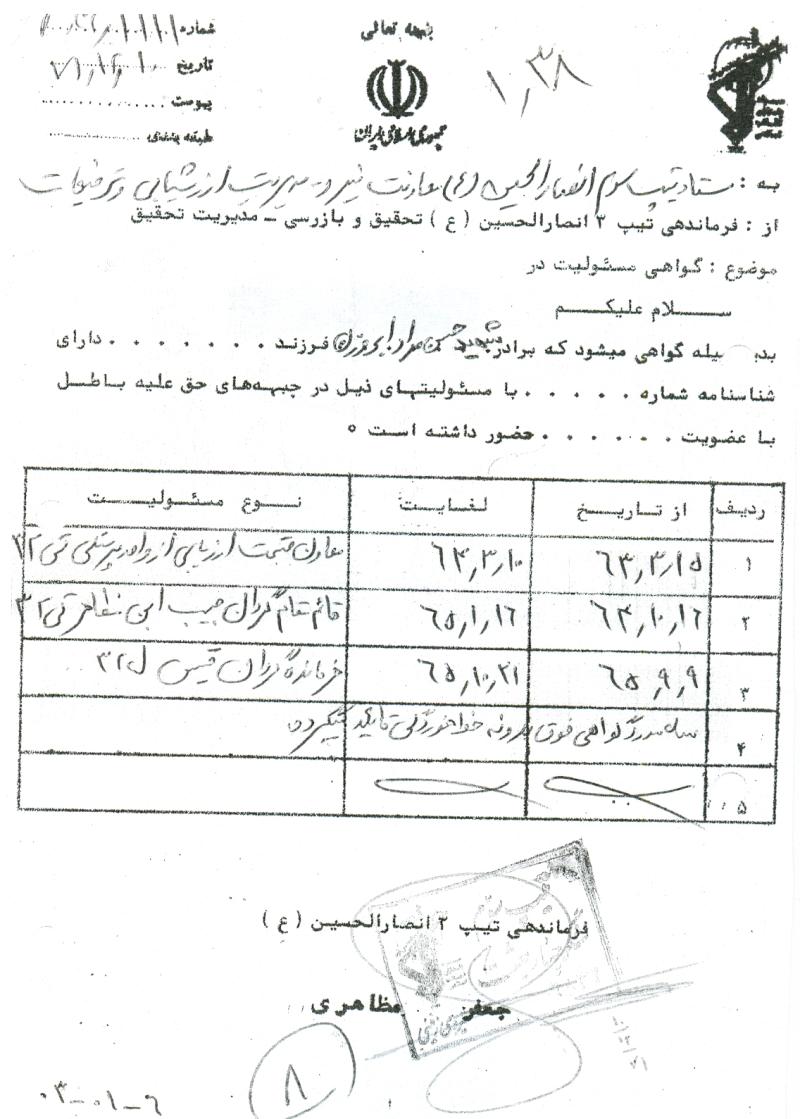 بسمه تعالی
جمهوری اسلامی ایران
شماره
تاریخ ۷۱/۱۲/۱۰
پیوست
طبقه بندی
۱,۳۸
به : ستاد تیپ سوم انصارالحسین (ع) معاونت نیرو - مدیریت ارزشیابی و ترفیعات
از : فرماندهی تیپ ۳ انصارالحسین ( ع ) تحقیق و بازرسی - مدیریت تحقیق
موضوع : گواهی مسئولیت در
ســلام علیکــم
یله گواهی میشود که برادر شهید حسن مراد فرزند . . . . . . . دارای
شناسنامه شماره . . . . . با مسئولیتهای ذیل در جبهه‌های حق علیه باطل
با عضویت . . . . . . حضور داشته است ۰
ردیف از تاریخ لغایت نوع مسئولیت
۱ ۶۳,۳,۱۵ ۶۴,۳,۱۰ معاون قسمت ارزیابی
۲ ۶۴,۱۰,۱۶ ۶۵,۱,۱۶ قائم مقام گردان حبیب ابن مظاهر تی ۳۲
۳ ۶۵,۹,۹ ۶۵,۱۰,۲۱ فرمانده گردان قیس ل ۳۲
۴ گواهی فوق تائید میگردد.
۵
فرماندهی تیپ ۳ انصارالحسین ( ع )
جعفر مظاهری
۸
۰۳-۰۱-۶